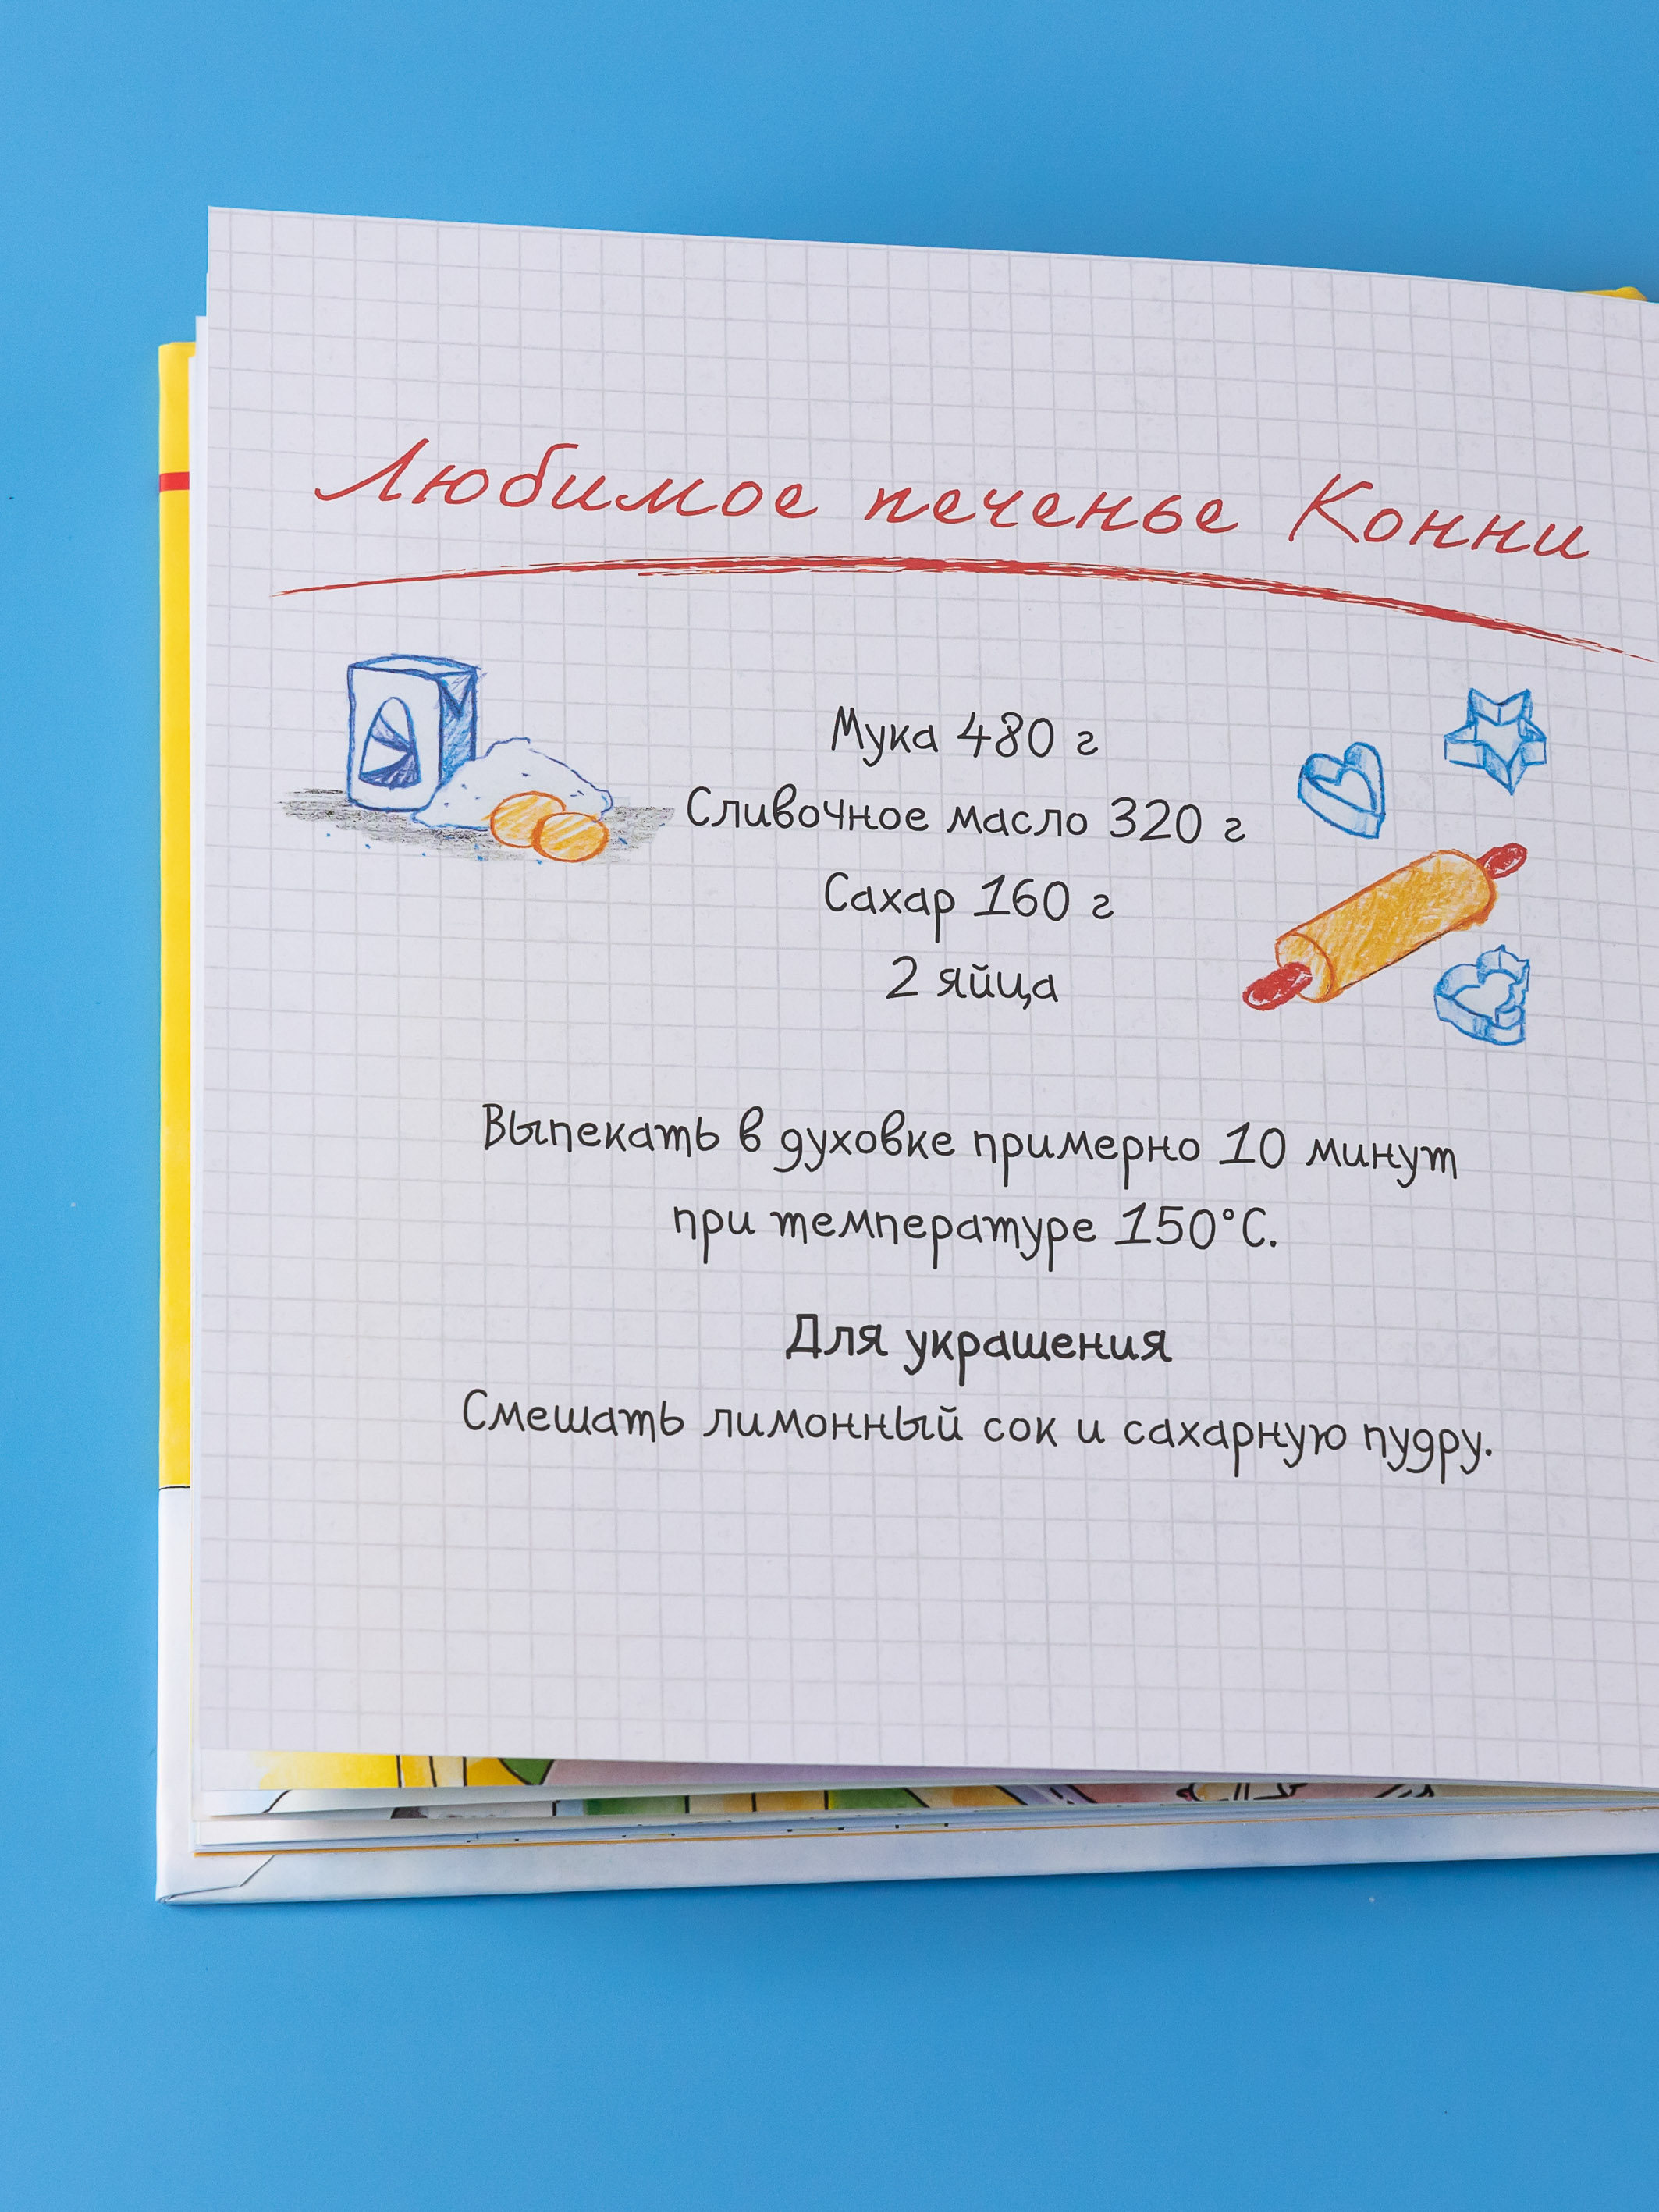 Любимое печенье Конни
Мука 480 г
Сливочное масло 320 г
Сахар 160 г
2 яйца
Выпекать в духовке примерно 10 минут
при температуре 150°С.
Для украшения
Смешать лимонный сок и сахарную пудру.